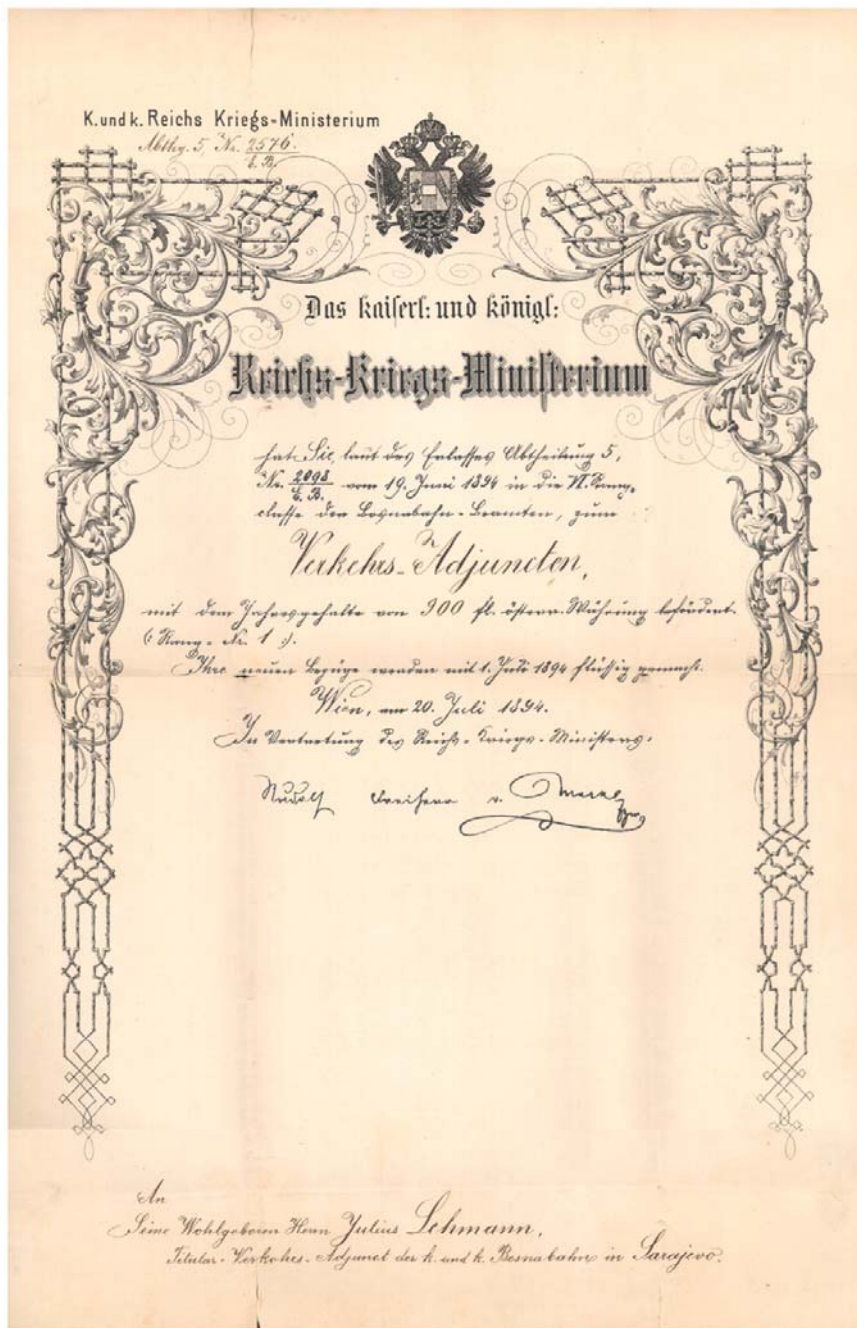 K. und k. Reichs Kriegs-Ministerium
Abthg. 5, No. 2576.
E. B.
Das kaiserl: und königl:
Reichs-Kriegs-Ministerium
hat Sie, laut des Erlasses Abtheilung 5,
No. 2098 / E. B. vom 19. Juni 1894 in die VI. Rang-
classe der Bosnabahn-Beamten, zum
Verkehrs-Adjuncten,
mit dem Jahresgehalte von 900 fl. österr. Währung befördert.
(: Rang-Nr. 1 :).
Ihre neuen Bezüge werden mit 1. Juli 1894 flüssig gemacht.
Wien, am 20. Juli 1894.
In Vertretung des Reichs-Kriegs-Ministers:
Rudolf Freiherr v.
An
Seine Wohlgeboren Herrn Julius Lehmann,
Titular-Verkehrs-Adjunct der k. und k. Bosnabahn in Sarajevo.